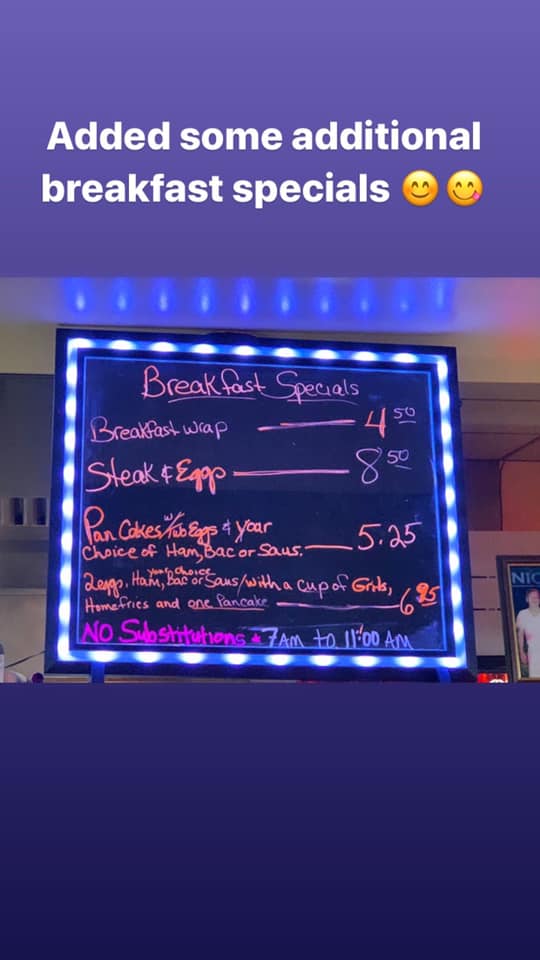 Added some additional
breakfast specials 😊 😋
Breakfast Specials
Breakfast wrap 4 50
Steak & Eggs 8 50
Pan Cakes w/ Two Eggs & your
choice of Ham, Bac or Saus. 5.25
your choice
2 eggs, Ham, Bac or Saus/with a cup of Grits,
Homefries and one Pancake 6 95
NO Substitutions * 7AM to 11:00 AM
NIC